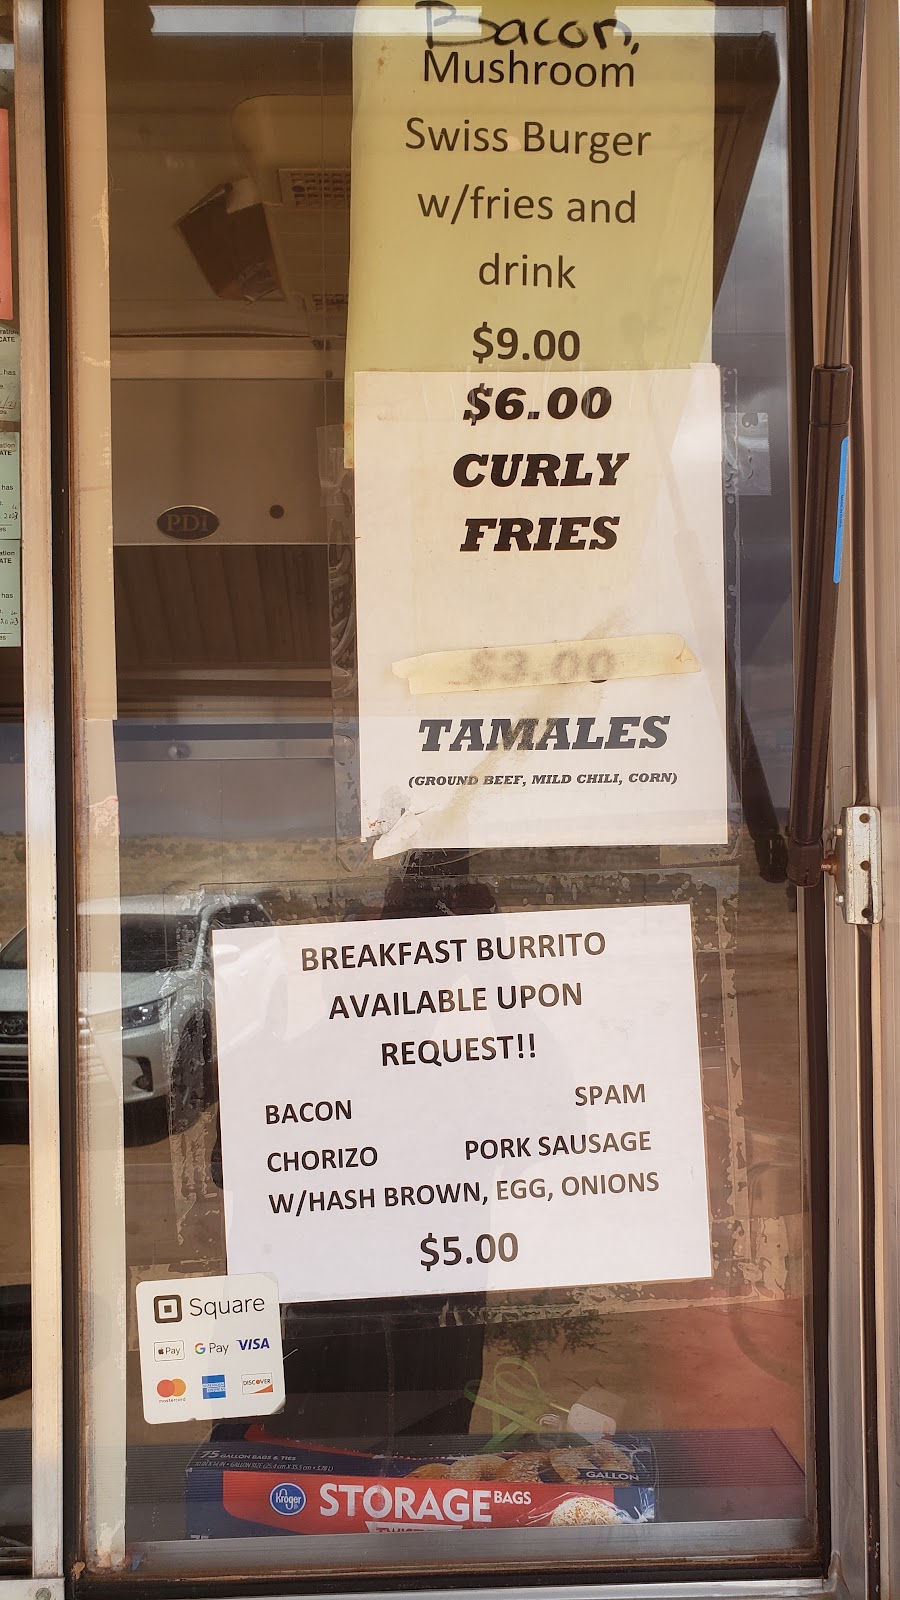 Bacon,
Mushroom
Swiss Burger
w/fries and
drink
$9.00
$6.00
CURLY
FRIES
$3.00
TAMALES
(GROUND BEEF, MILD CHILI, CORN)
PDI
BREAKFAST BURRITO
AVAILABLE UPON
REQUEST!!
BACON SPAM
CHORIZO PORK SAUSAGE
W/HASH BROWN, EGG, ONIONS
$5.00
Square
Pay G Pay VISA
mastercard AMERICAN EXPRESS DISCOVER
75 GALLON BAGS & TIES
GALLON
Kroger STORAGE BAGS